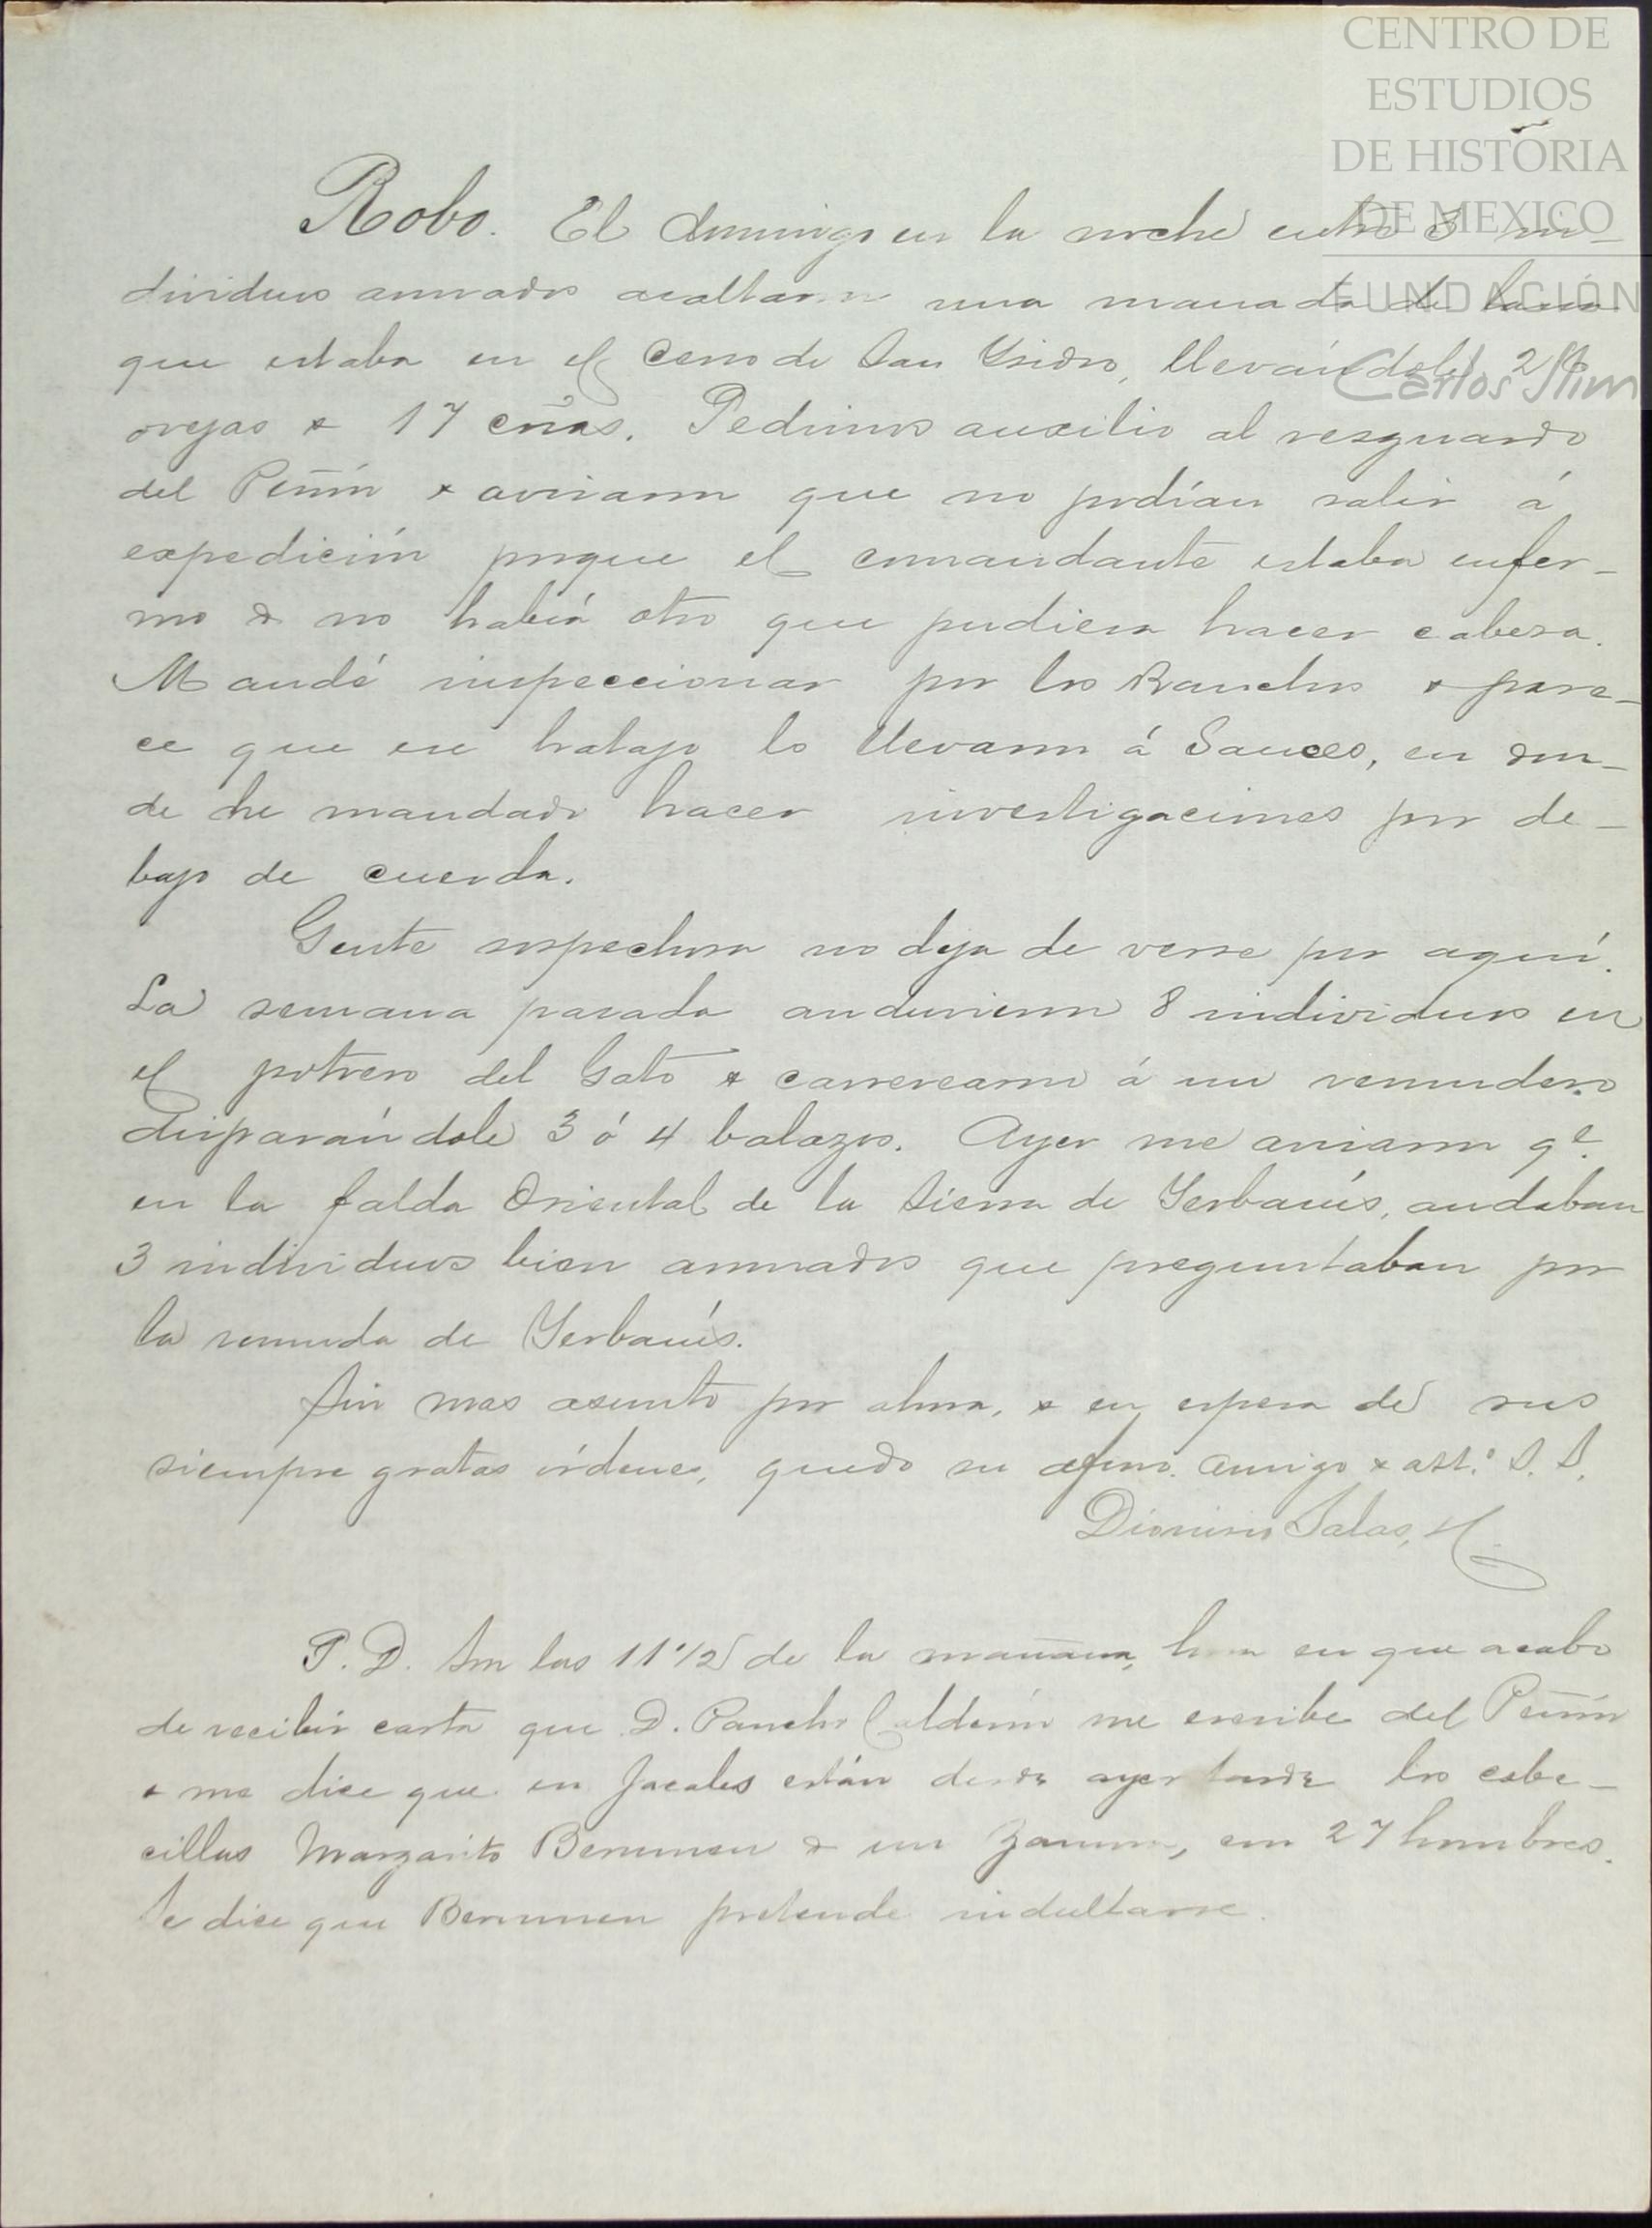 CENTRO DE
ESTUDIOS
DE HISTORIA
DE MEXICO
FUNDACIÓN
Carlos Slim
Robo. El domingo en la noche entre 3 in-
dividuos armados asaltaron una manada de
que estaba en el Cerro de San Ysidro, llevándole
ovejas & 17 crías. Pedimos auxilio al resguardo
del Peñón & avisaron que no podían salir á
expedición porque el comandante estaba enfer-
mo & no había otro que pudiera hacer cabeza.
Mandé inspeccionar por los Ranchos & pare-
ce que ese hatajo lo llevaron á Sauces, en don-
de he mandado hacer investigaciones por de-
bajo de cuerda.
Gente sospechosa no deja de verse por aquí.
La semana pasada anduvieron 8 individuos en
el potrero del Gato & carrerearon á un remudero
disparándole 3 ó 4 balazos. Ayer me avisaron qe.
en la falda Oriental de la Sierra de Yerbanís, andaban
3 individuos bien armados que preguntaban por
la remuda de Yerbanís.
Sin mas asunto por ahora, & en espera de sus
siempre gratas órdenes, quedo su afmo. amigo & att.o S. S.
Dionisio Salas, H.
P. D. Son las 11 1/2 de la mañana, hora en que acabo
de recibir carta que D. Pancho Calderón me escribe del Peñón
& me dice que en Jacales están desde ayer tarde los cabe-
cillas Margarito Berumen & un Zamora, con 27 hombres.
Se dice que Berumen pretende indultarse.